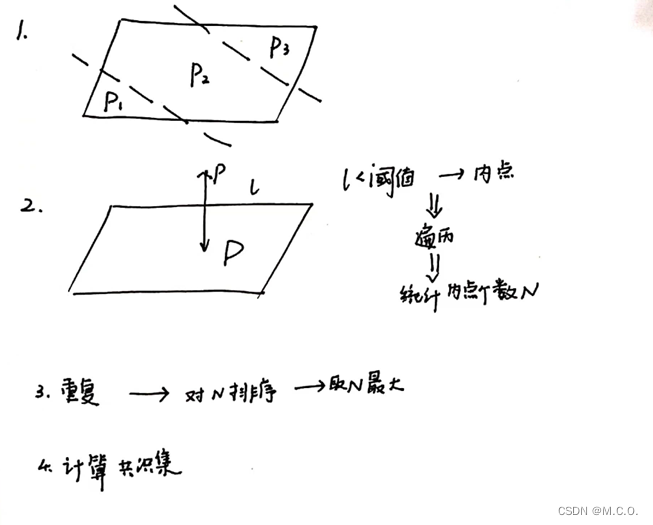 1.
P₁ P₂ P₃
2.
P
l
P
l<阈值 → 内点
遍历
统计内点个数N
3. 重复 → 对N排序 → 取N最大
4. 计算共识集
CSDN @M.C.O.